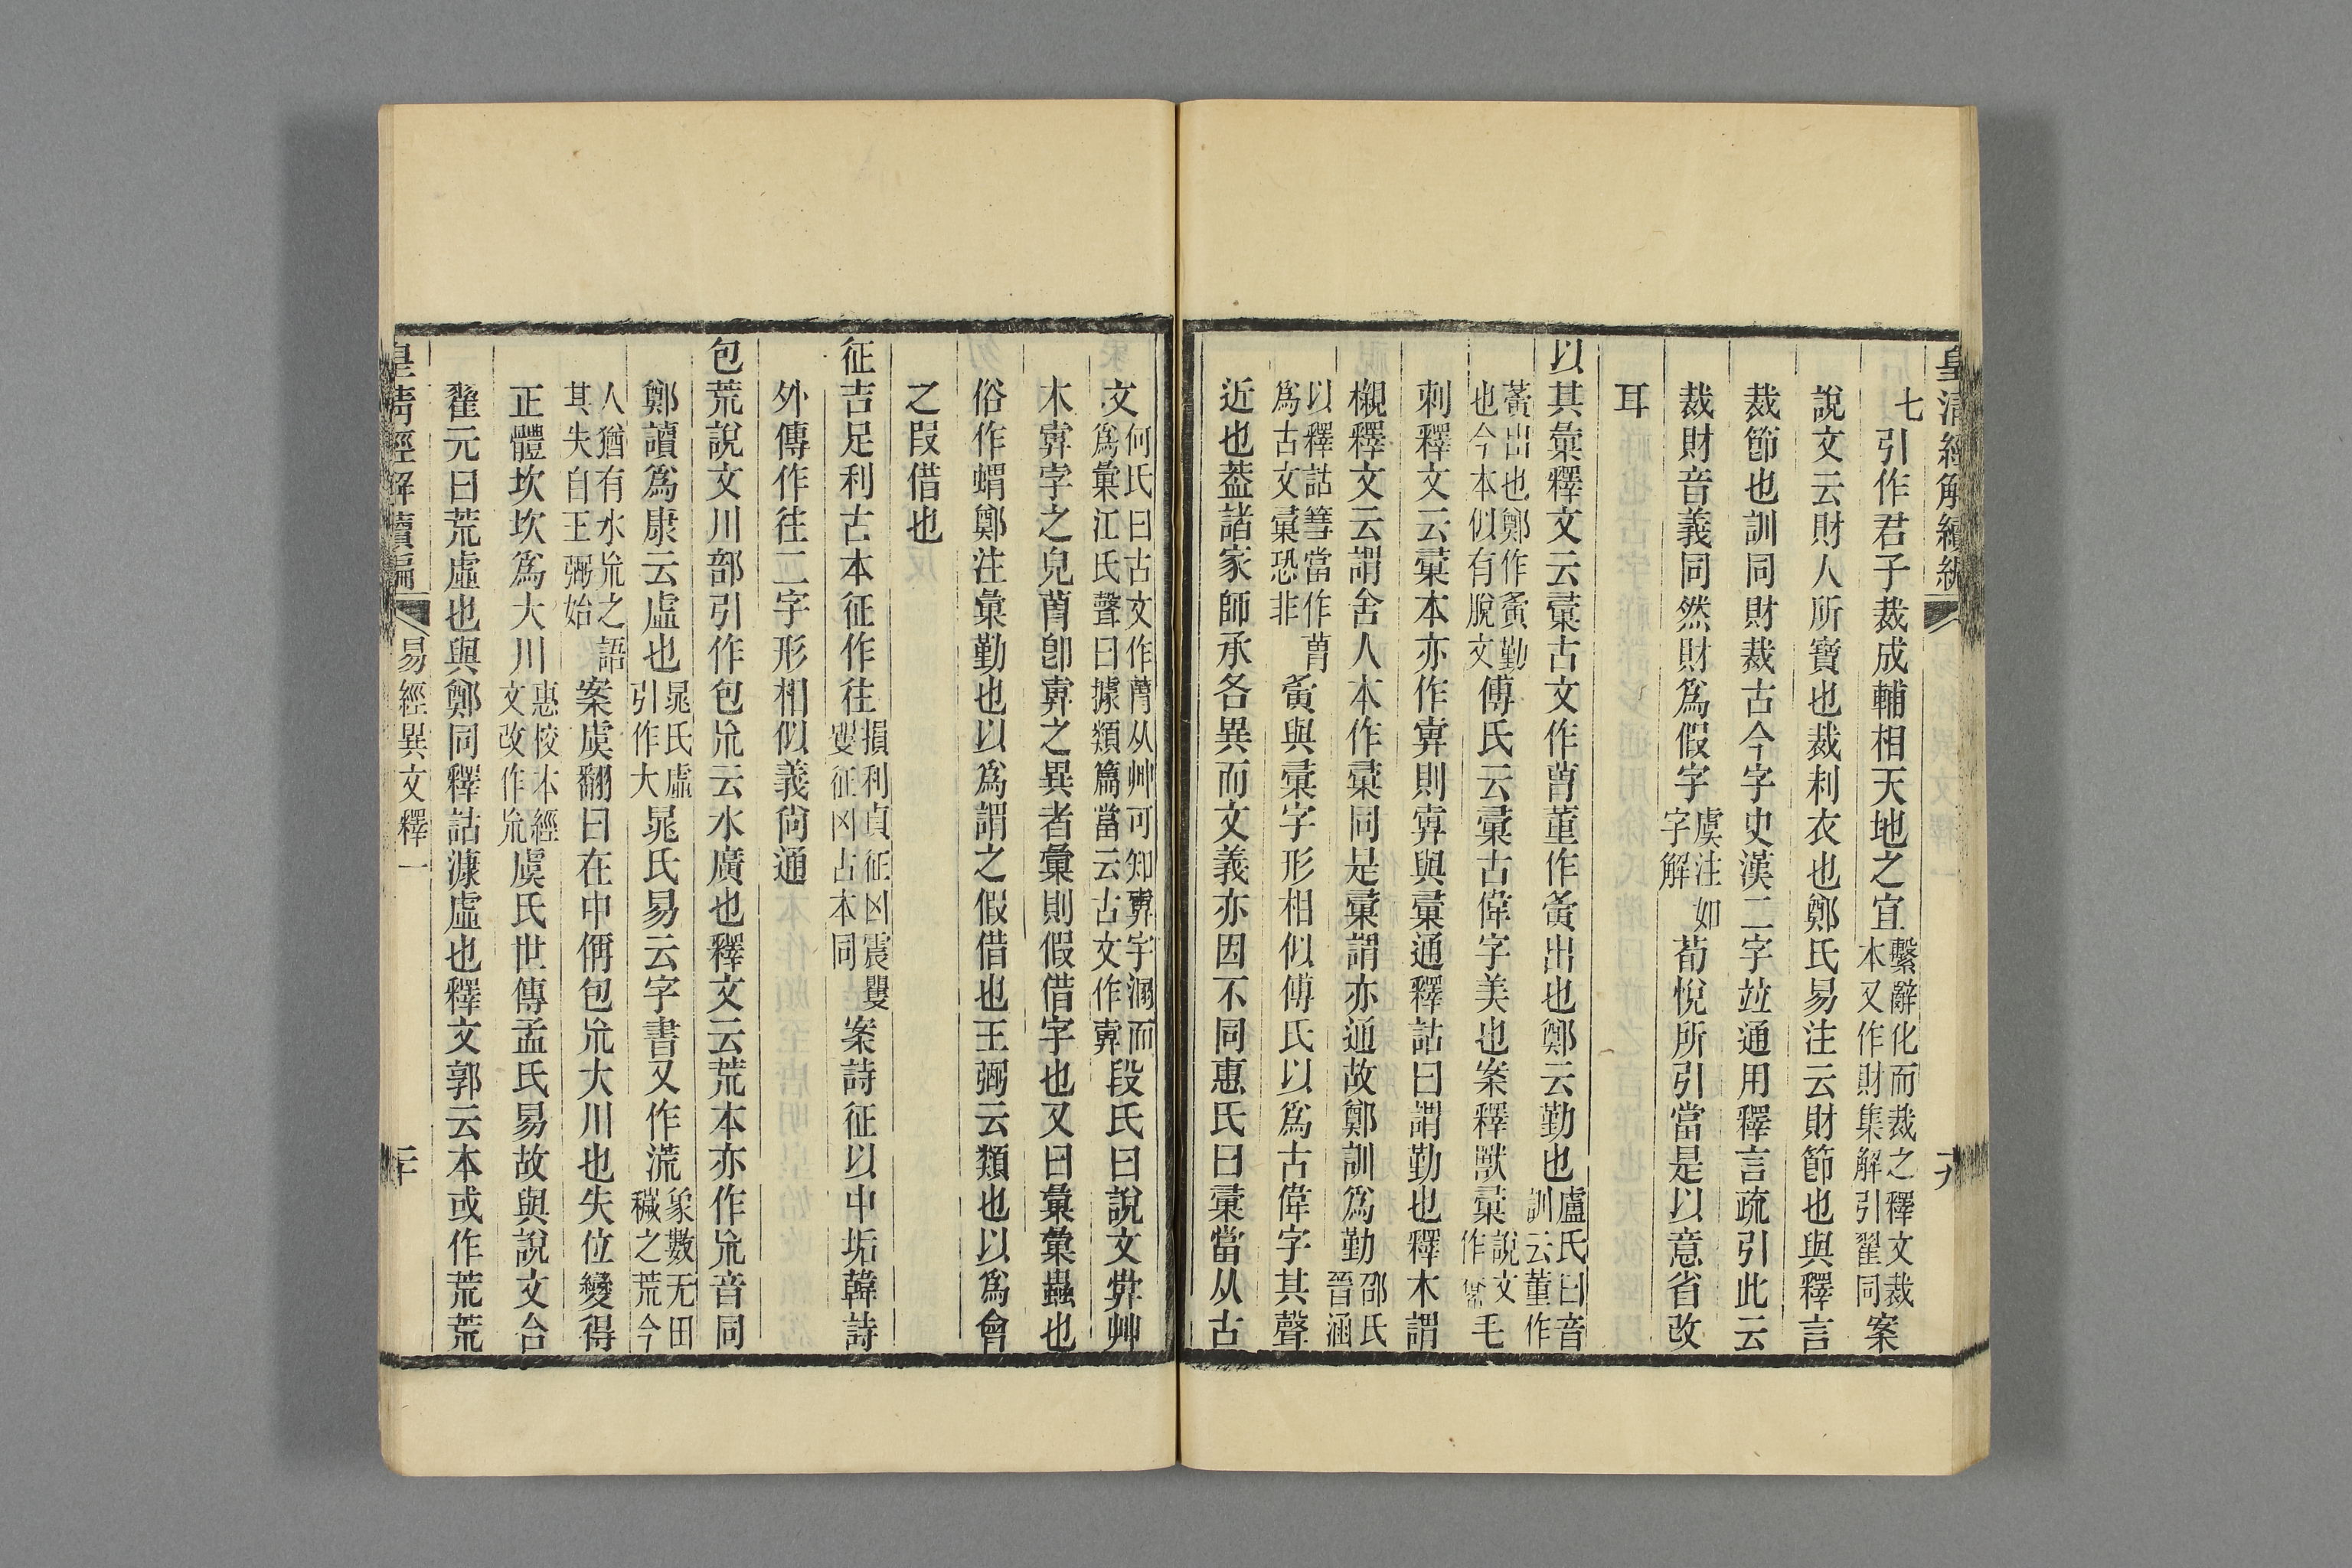 皇清經解續編
七引作君子裁成輔相天地之宜繫辭化而裁之釋文裁本又作財集解引翟同案
說文云財人所寶也裁制衣也鄭氏易注云財節也與釋言
裁節也訓同財裁古今字史漢二字竝通用釋言疏引此云
裁財音義同然財爲假字虞注如字解荀悅所引當是以意省改
耳
以其彙釋文云彚古文作䓝董作夤出也鄭云勤也盧氏曰音訓云董作
夤出也鄭作夤勤也今本似有脫文傅氏云彚古偉字美也案釋獸彚說文作毛
刺釋文云彚本亦作㝿則㝿與彚通釋詁曰謂勤也釋木謂
櫬釋文云謂舍人本作彚同是彚謂亦通故鄭訓爲勤邵氏晉涵
以釋詁篲當作䓝爲古文彚恐非夤與彚字形相似傅氏以爲古偉字其聲
近也葢諸家師承各異而文義亦因不同惠氏曰彚當从古
文何氏曰古文作䓝从艸可知㝿字溷而爲彙江氏聲曰據類篇當云古文作㝿段氏曰說文㝿艸
木㝿孛之皃䓝卽㝿之異者彙則假借字也又曰彙彙蟲也
俗作蝟鄭注彙勤也以爲謂之假借也王弼云類也以爲會
之叚借也
征吉足利古本征作往損利貞征凶震䢅䢅征凶古本同案詩征以中垢韓詩
外傳作往二字形相似義尙通
包荒說文川部引作包巟云水廣也釋文云荒本亦作巟音同
鄭讀爲康云虛也晁氏虛引作大晁氏易云字書又作㡃象數无田穢之荒今
人猶有水巟之語其失自王弼始案虞翻曰在中偁包巟大川也失位變得
正體坎坎爲大川惠校本經文改作巟虞氏世傳孟氏易故與說文合
翟元曰荒虛也與鄭同釋詁漮虛也釋文郭云本或作荒荒
皇清經解續編
易經異文釋一